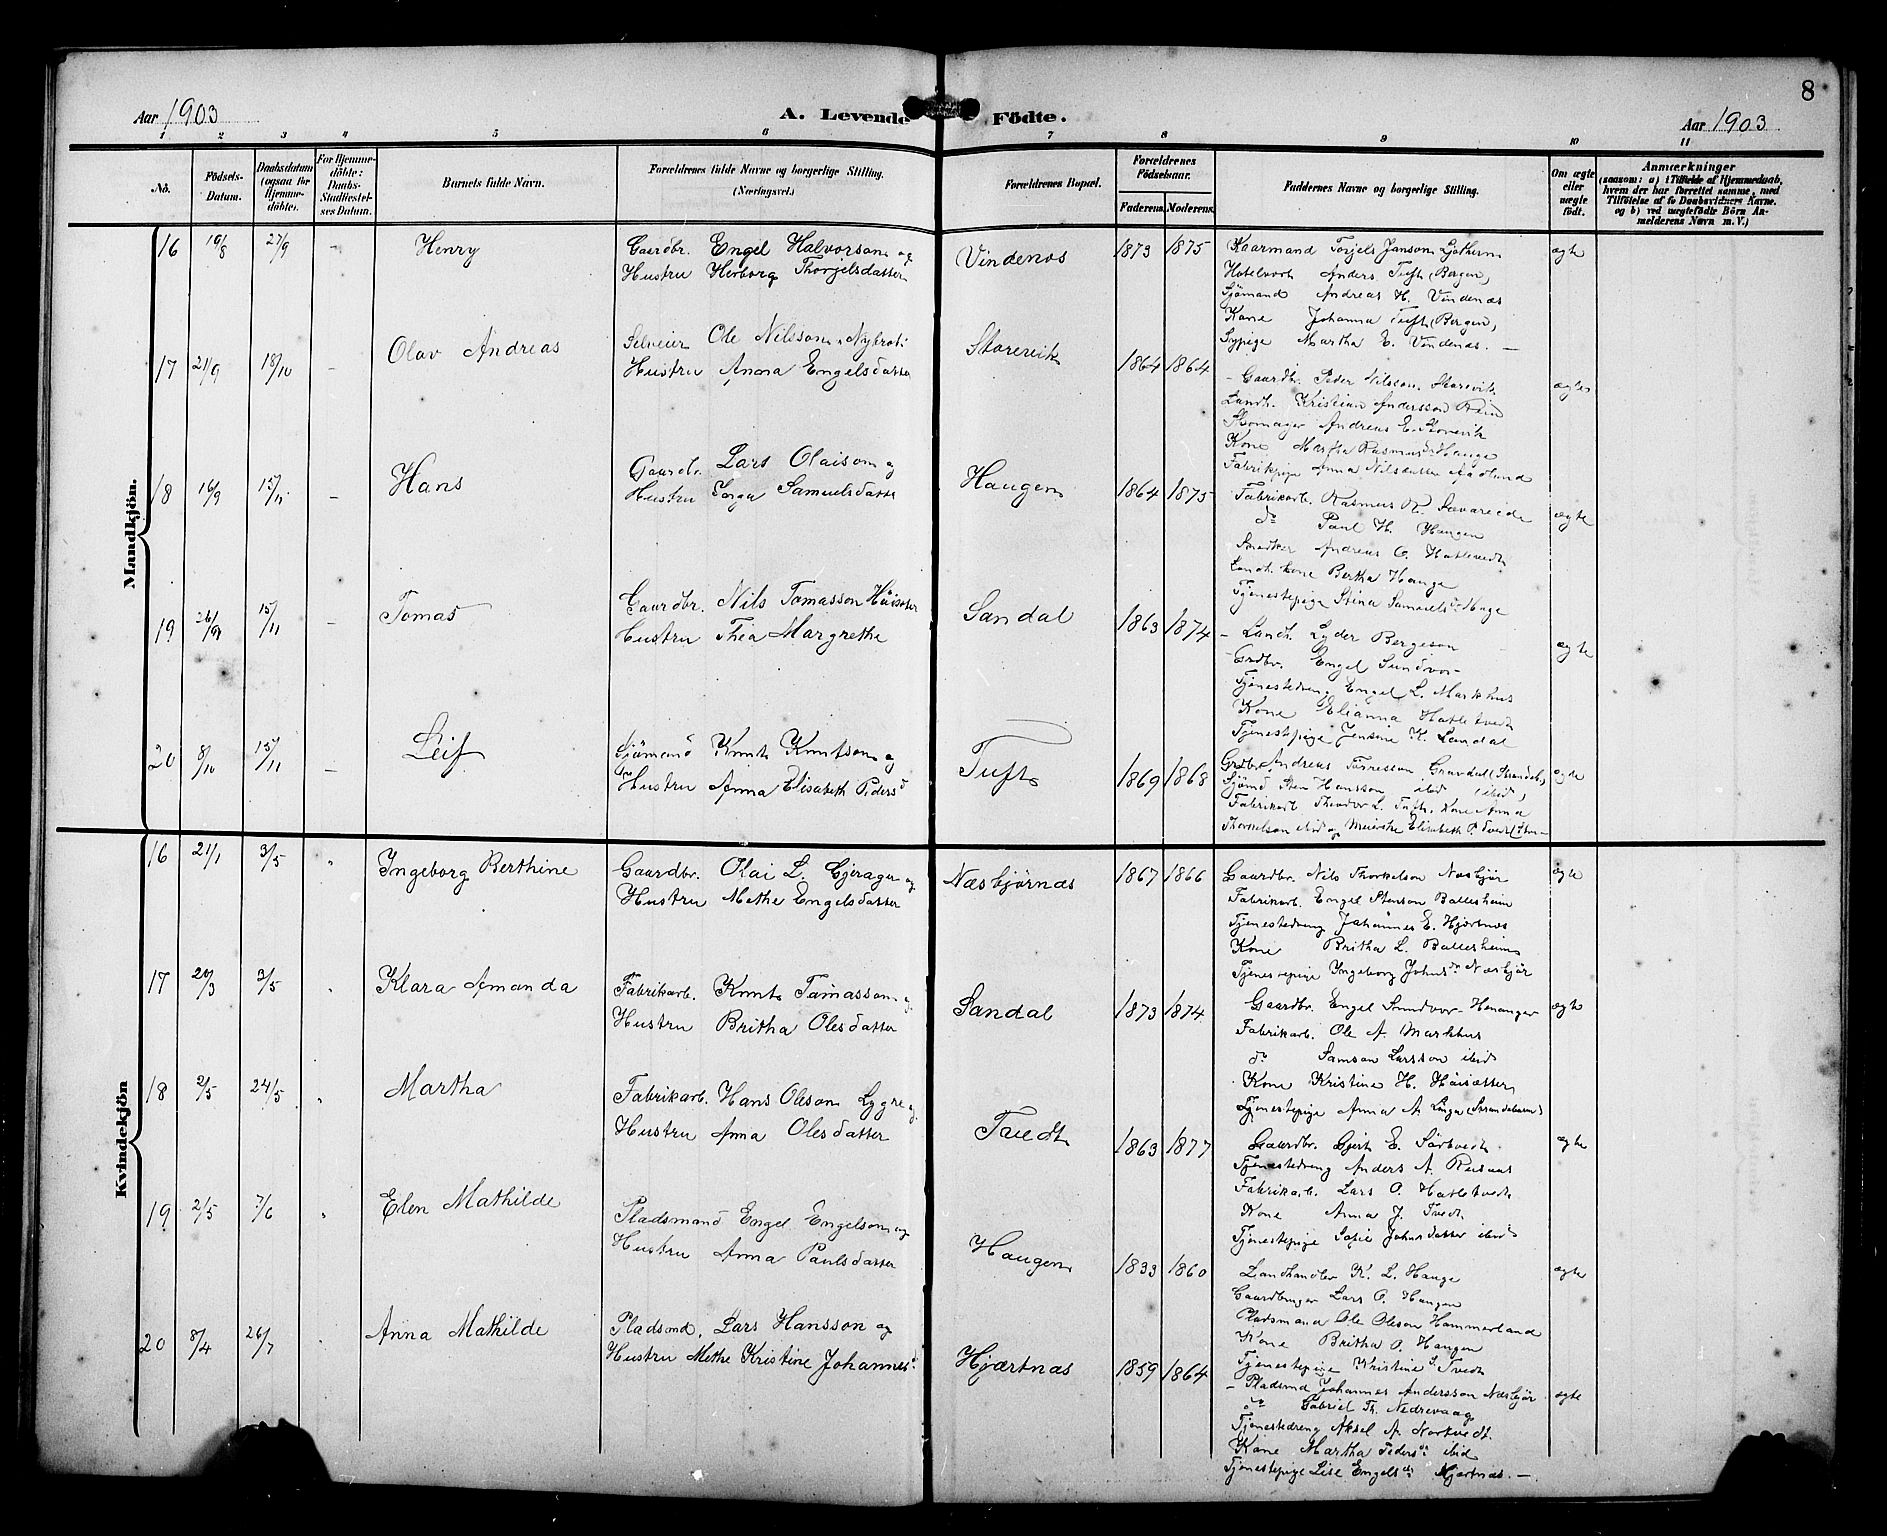 8
Aar 1903
A. Levende Födte.
Aar 1903
1 2 3 4 5 6 7 8 9 10 11
No.
Födsels-Datum.
Daabsdatum (ogsaa for Hjemmedöbte).
For Hjemmedöbte: Daabs-Stadfæstelses Datum.
Barnets fulde Navn.
Forældrenes fulde Navne og borgerlige Stilling. (Næringsvei.)
Forældrenes Bopæl.
Forældrenes Födselsaar.
Faderens. Moderens.
Faddernes Navne og borgerlige Stilling.
Om ægte eller uægte födt.
Anmærkninger
(saasom: a) i Tilfælde af Hjemmedaab, hvem der har forrettet samme, med Tilföielse af to Daabsvidners Navne. og b) ved uægtefödte Börn Anmelderens Navn m. V.)
Mandkjön.
16 19/8 27/9 - Henry
Gaardbr. Engel Halvorson og
Hustru Herborg Thorjelsdatter
Vindenes 1873 1875
Kaarmand Torjels Janson
Hotelvært Anders Tuft (Bergen)
Sjømand Andreas H. Vindenæs
Kone Johanna Tuft (Bergen)
Sypige Martha E. Vindenæs. -
ægte
17 21/9 18/10 - Olav Andreas
Selveier Ole Nilsson
Hustru Anna Engelsdatter
Storevik 1864 1864
- Gaardbr. Peder Nilsson Storevik
Landh. Kristian Andersson
Skomager Andreas E. Storevik
Kone Martha Rasmusd. Hauge
Fabrikpige Anna Nilsdatter Aadland
ægte
18 16/9 15/11 - Hans
Gaardbr. Lars Olaison og
Hustru Samuelsdatter
Haugen 1864 1875
Fabrikarb. Rasmus R. Sævareide
do Paul H. Haugen
Snedker Andreas O. Hatletvedt
Landh. kone Bertha Hauge
Tjenestepige Stina Samuelsd. Hauge
ægte
19 26/9 15/11 - Tomas
Gaardbr. Nils Tomasson Höisæter
Hustru Thea Margrethe
Sandal 1863 1874
- Landh. Lyder Bergeson
- Grdbr. Engel Sundvor -
Tjenestedreng Engel L. Markhus
Kone Elianna Hatletvedt
Tjenestepige Jensine K. Sandal
ægte
20 8/10 15/11 - Leif
Sjömand Knut Knutson og
Hustru Anna Elisabeth Pedersd
Tuft 1869 1868
Grdbr. Andreas Torresson Gravdal (Strandeb.)
Sjømd Sten Hansson ibid (ibid)
Fabrikarb Theodor L. Tuft. Kone Anna
Thorkelson ibid og Meierske Elisabeth P. Tvedt
ægte
Kvindekjön
16 21/1 3/5 " Ingeborg Berthine
Gaardbr. Olai L. Gjerager og
Hustru Methe Engelsdatter
Næsbjørnæs 1867 1866
Gaardbr. Nils Thorkelson Næsbjør
Fabrikarb. Engel Stenson Ballesheim
Tjenestedreng Johannes E. Hjertnæs
Kone Britha L. Ballesheim
Tjenestepige Ingeborg Johnsdr Næsbjør
ægte
17 20/3 3/5 " Klara Amanda
Fabrikarb. Knut Tomasson og
Hustru Britha Olesdatter
Sandal 1873 1874
Gaardbr. Engel Sundvor - Henanger
Fabrikarb. Ole A. Markhus
do Samson Larsson ibid
Kone Kristine H. Höisæter
Tjenestepige Anna A. Linga (Strandebarm)
ægte
18 2/5 24/5 " Martha
Fabrikarb. Hans Oleson Lygre og
Hustru Anna Olesdatter
Tvedt 1863 1877
Gaardbr. Gjert E. Sörtvedt.
Tjenestedreng Anders A. Reisæt
Fabrikarb. Lars O. Hatletvedt
Kone Anna J. Tvedt
Tjenestepige Sofie Johnsdatter ibid
ægte
19 2/5 7/6 " Elen Mathilde
Pladsmand Engel Engelson og
Hustru Anna Paulsdatter
Haugen 1833 1860
Landhandler K. L. Hauge
Gaardbruger Lars O. Haugen
Pladsmand Ole Oleson Hammerland
Kone Britha O. Haugen
Tjenestepige Kristine S. Tvedt
ægte
20 8/4 26/7 " Anna Mathilde
Pladsmd. Lars Hansson og
Hustru Methe Kristine Johannesd.
Hjærtnæs 1859 1864
- Pladsmd Johannes Andersson Næsbjør
do Gabriel Th. Nedrevaag
Tjenestedreng Aksel A. Nortvedt.
Kone Martha Pedersdr ibid
Tjenestepige Lise Engelsdr Hjærtnæs. -
ægte